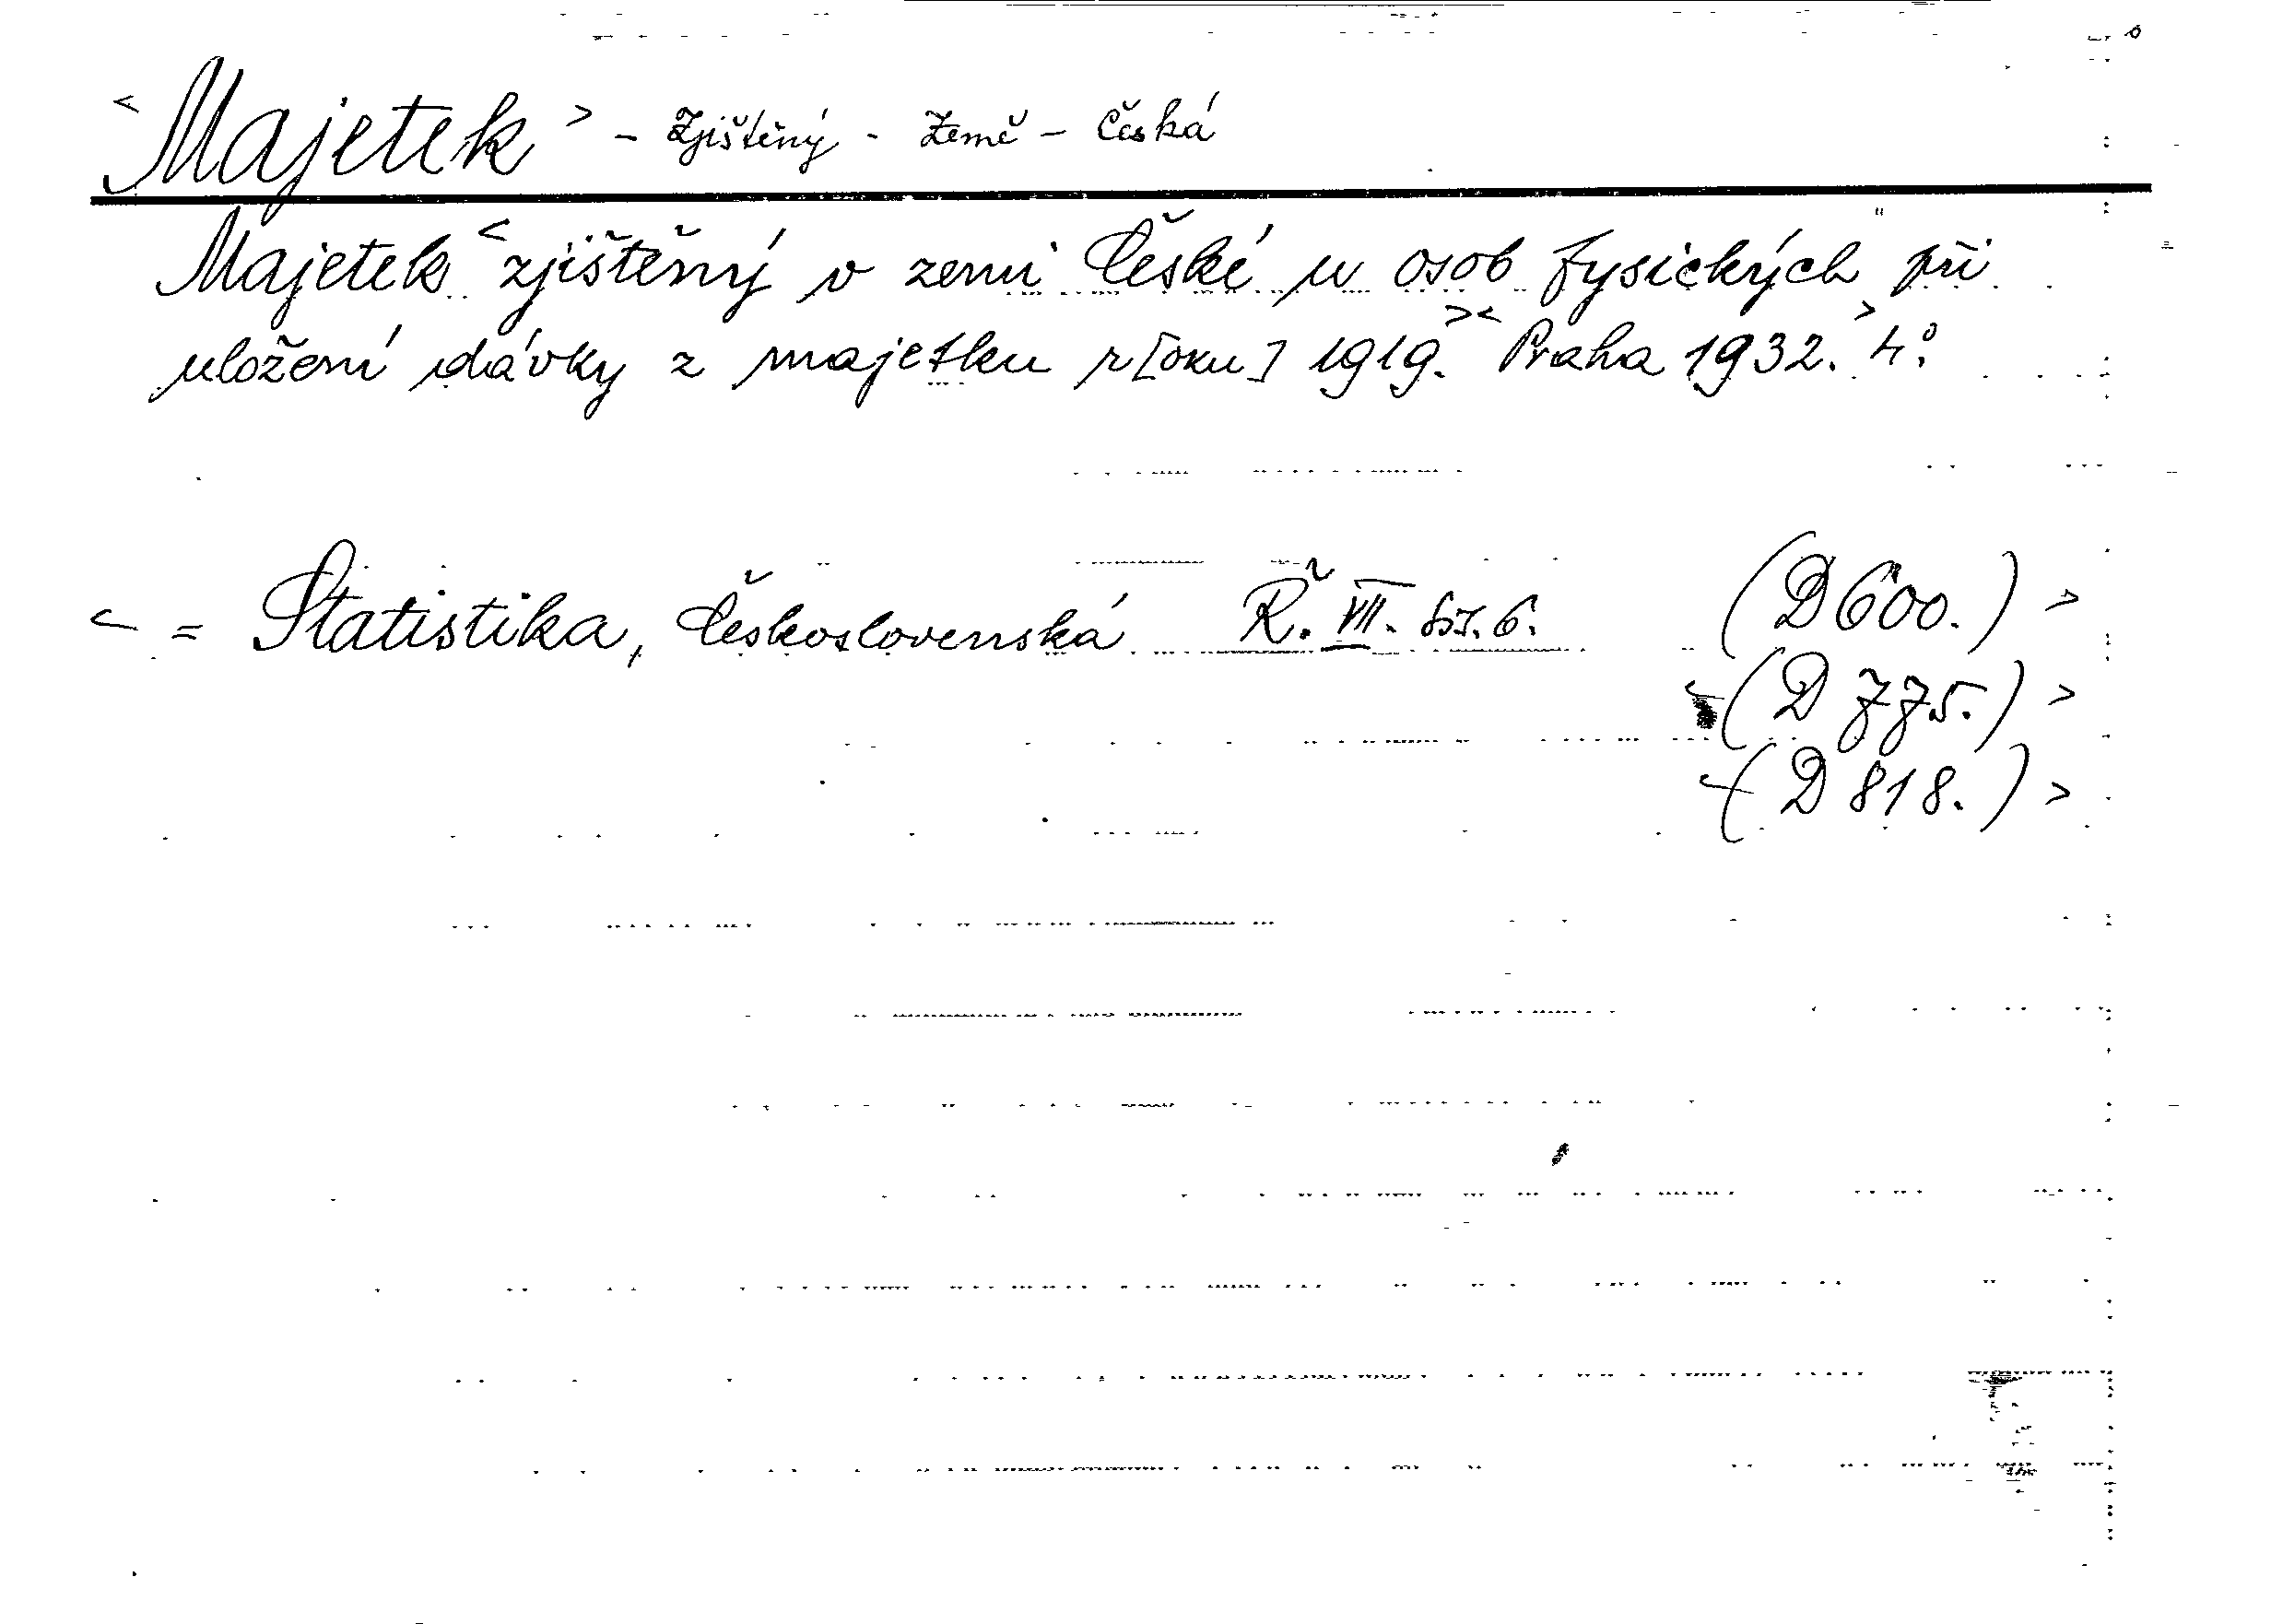 <Majetek> - Zjištěný - Země - Česká
Majetek <zjištěný v zemi České u osob fysických při
uložení dávky z majetku r[oku] 1919.>< Praha 1932.> 4°.
< = Statistika, Československá Ř. VII. Sv. 6. (D600.) >
<(D 775.) >
<(D 818.) >